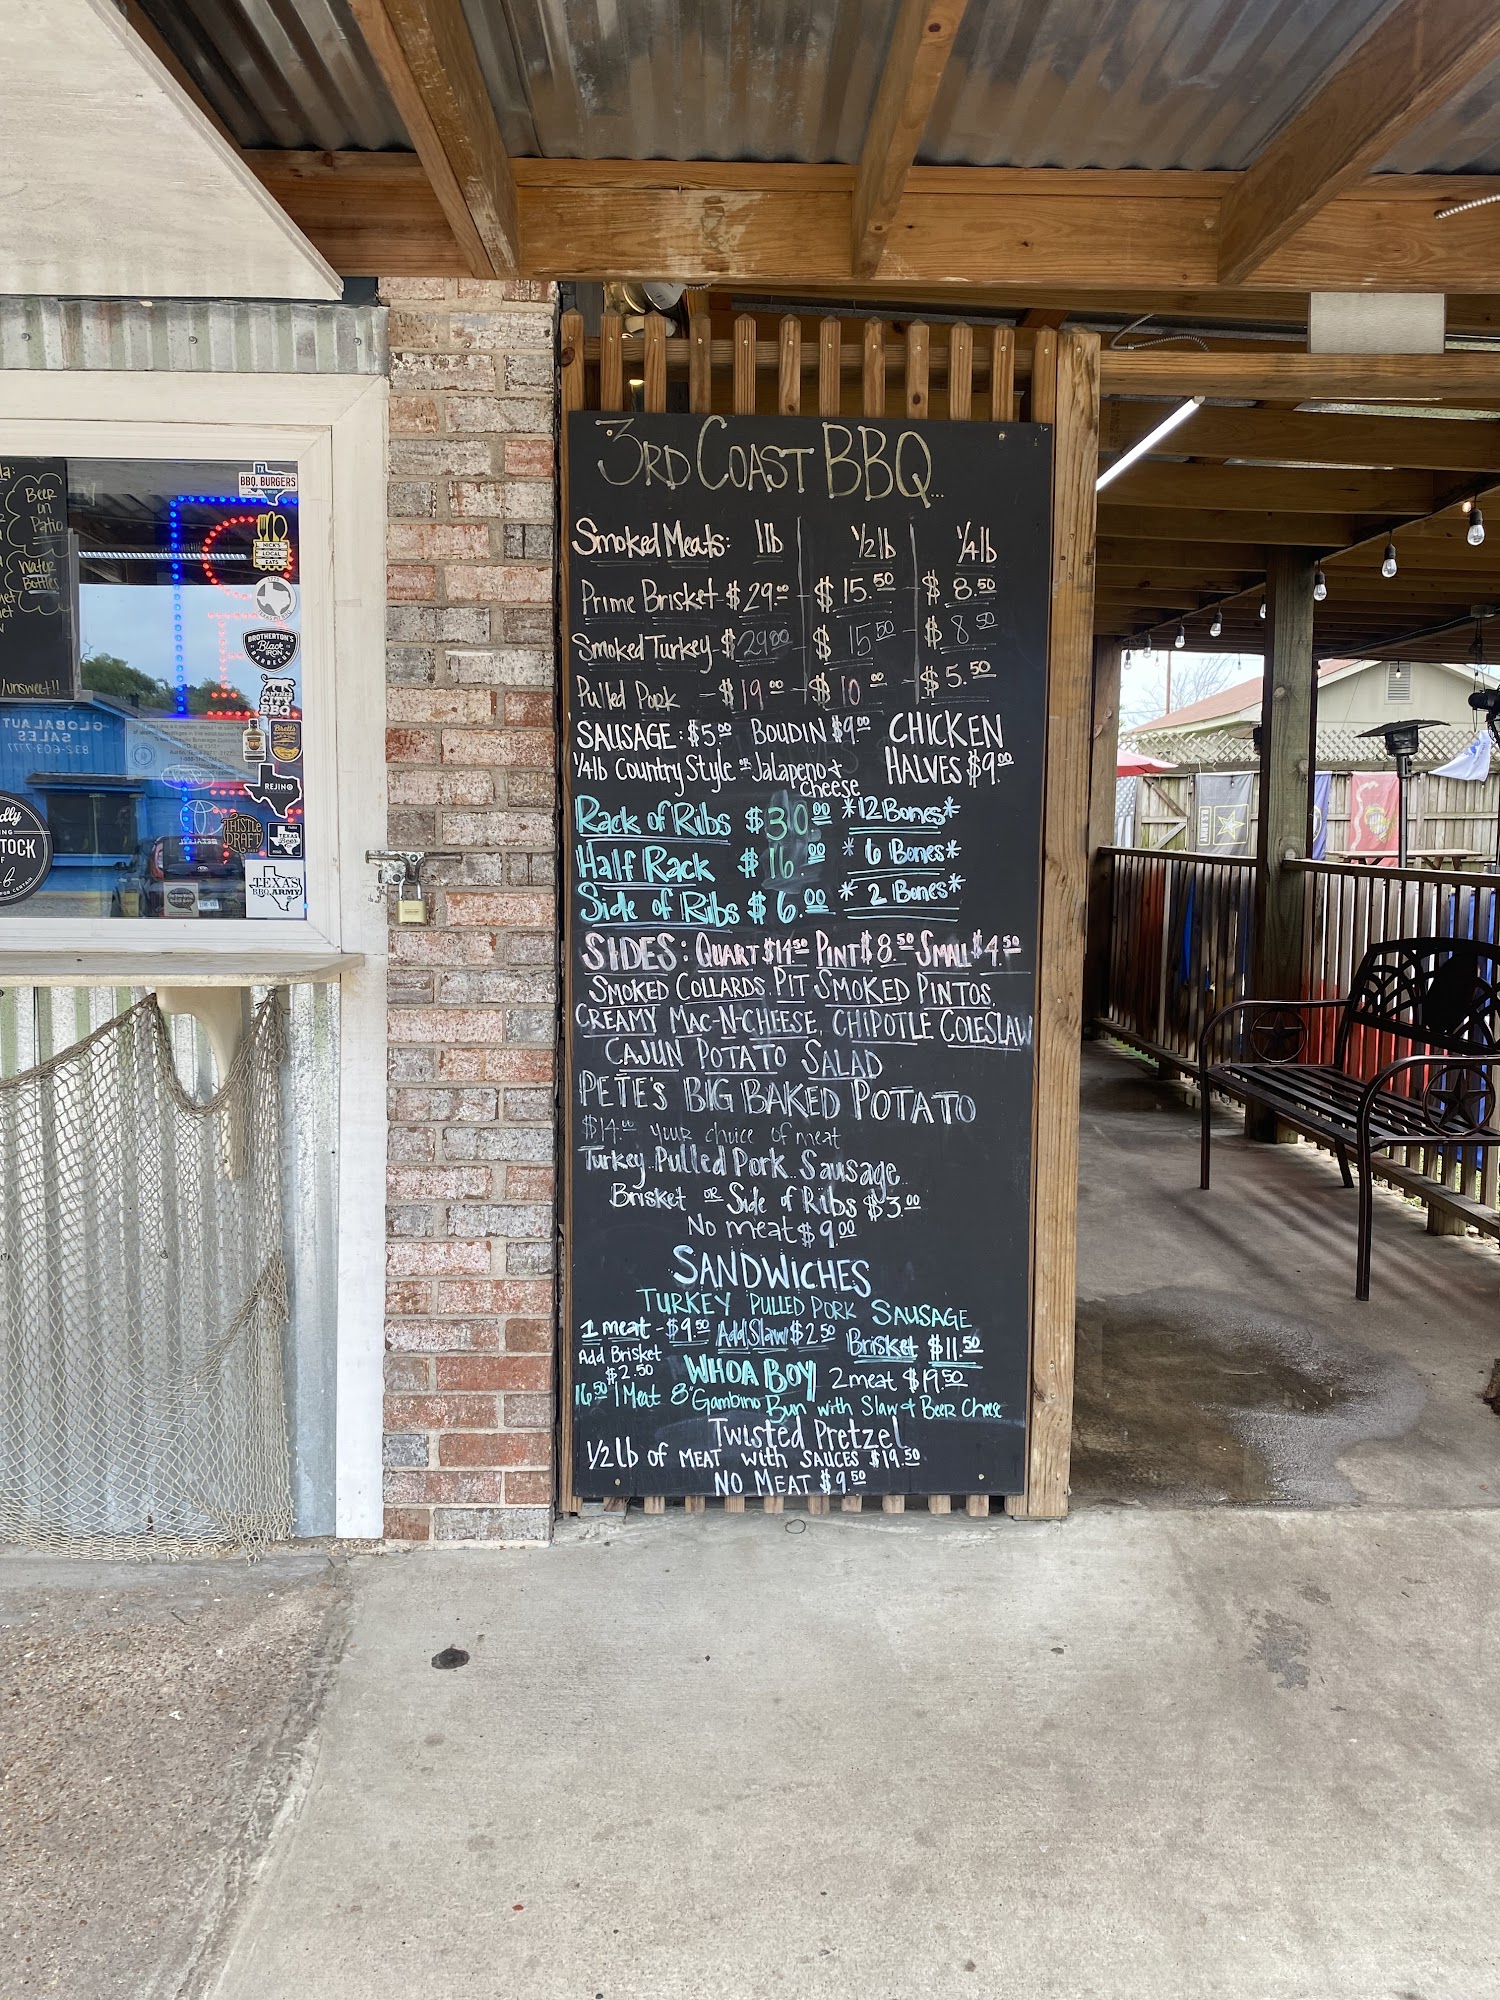 3RD COAST BBQ...
Smoked Meats: 1lb 1/2lb 1/4lb
Prime Brisket - $29.00 - $15.50 - $8.50
Smoked Turkey - $29.00 - $15.50 - $8.50
Pulled Pork - $19.00 - $10.00 - $5.50
SAUSAGE: $5.00 BOUDIN $9.00 CHICKEN
1/4lb Country Style or Jalapeno + cheese HALVES $9.00
Rack of Ribs $30.00 *12 Bones*
Half Rack $16.00 * 6 Bones*
Side of Ribs $6.00 * 2 Bones*
SIDES: QUART $14.50 PINT $8.50 SMALL $4.50
SMOKED COLLARDS, PIT SMOKED PINTOS,
CREAMY MAC-N-CHEESE, CHIPOTLE COLESLAW
CAJUN POTATO SALAD
PETE'S BIG BAKED POTATO
$14.00 your choice of meat
Turkey..Pulled Pork..Sausage..
Brisket OR Side of Ribs $3.00
No meat $9.00
SANDWICHES
TURKEY PULLED PORK SAUSAGE
1 meat - $9.50 Add Slaw $2.50 Brisket $11.50
Add Brisket $2.50 WHOA BOY! 2 meat $19.50
16.50 1 Meat 8" Gambino Bun with Slaw & Beer Chese
Twisted Pretzel
1/2lb of MEAT with SAUCES $19.50
NO MEAT $9.50
Beer
on
Patio
Water
Bottles
/unsweet!!
TX
BBQ, BURGERS
NICK'S
LOCAL
EATS
BROTHERTON'S
Black
IRON
BARBECUE
CITY
BBQ
Brett's
REJINO
THISTLE
DRAFT
TEXAS
TEXAS
BBQ ARMY
GLOBAL AUT
SALES
832-603-7777
STOCK